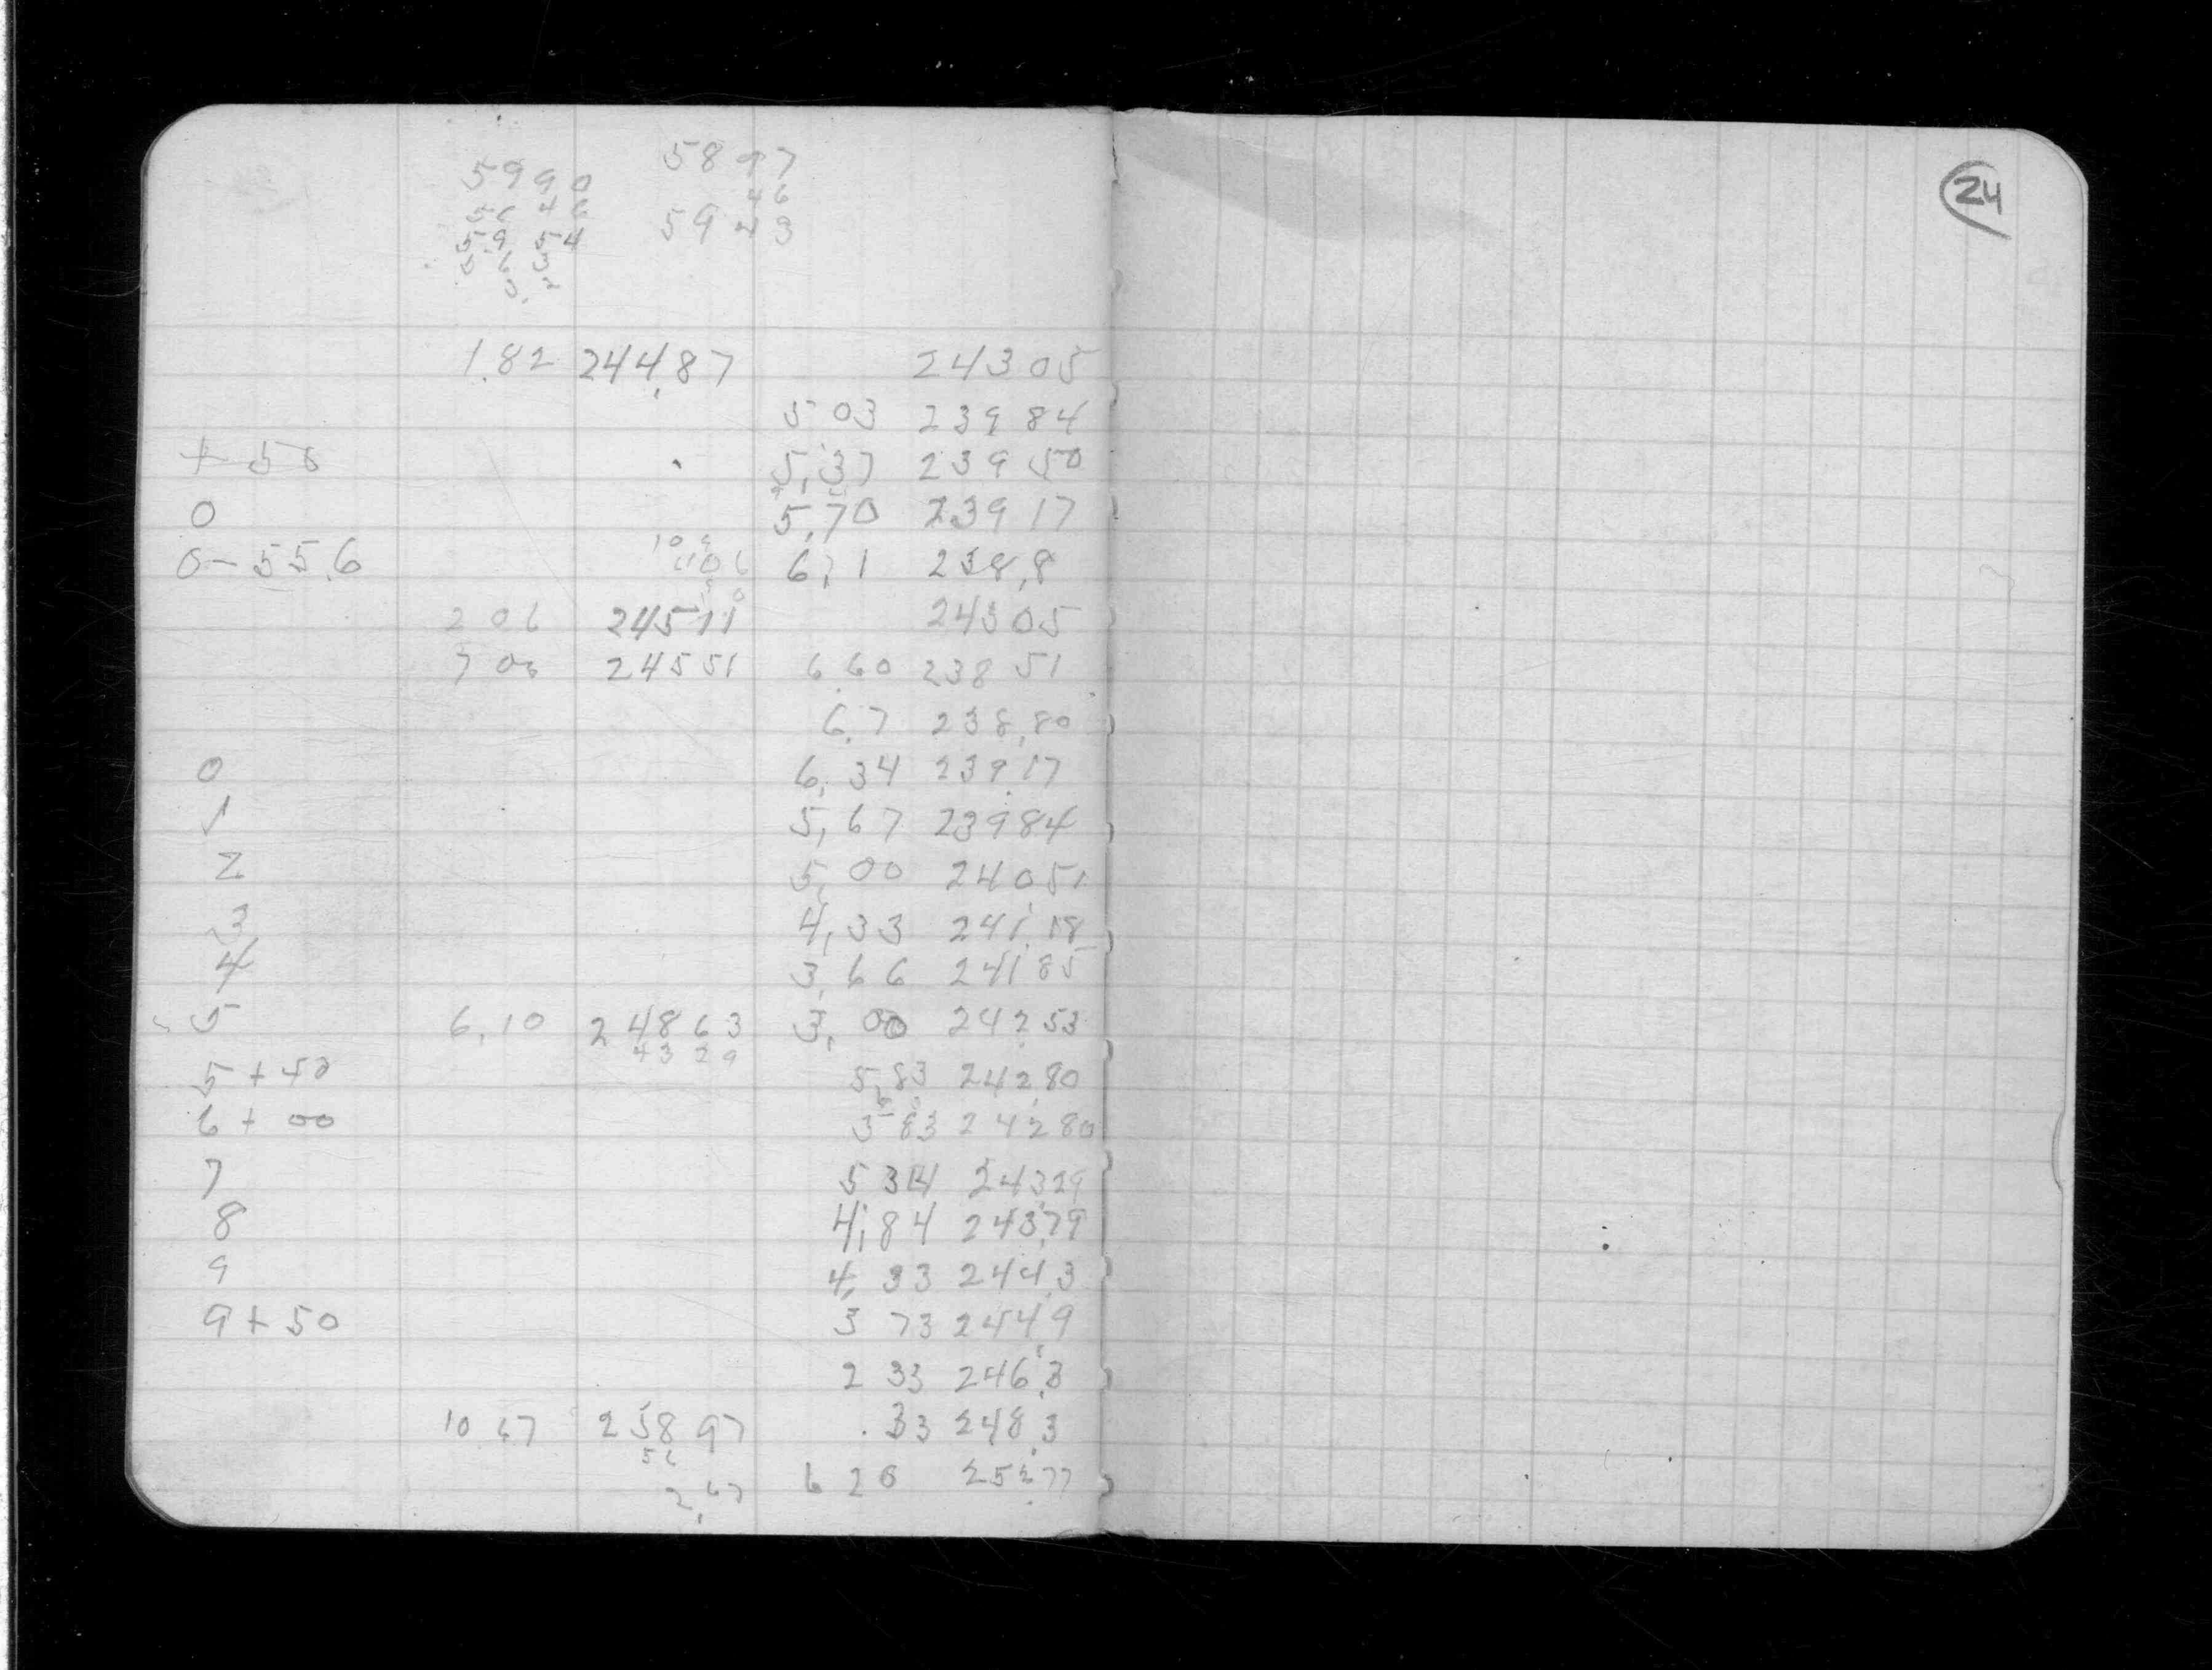 24
5990
5897
46
5943
59 54
1.82 244.87 24305
5 03 23984
+ 50 5,37 239 50
0 5,70 23917
0 - 55.6 6,1 238,8
206 24511 24305
700 24551 6.60 238 51
6.7 238,80
0 6,34 239.17
1 5,67 23984
2 5,00 24051
3 4,33 241.18
4 3,66 24185
5 6,10 24863 3,00 24253
4329
5 + 50 5,83 24280
6 + 00 5 83 24280
7 5 34 24329
8 4,84 243,79
9 4,33 244.3
9 + 50 3 73 244 9
2 33 246.3
10 67 258 97 .33 248.3
2,67 6 20 25277